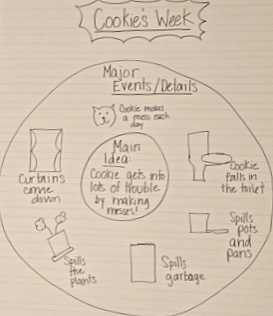 Cookie's Week
Major
Events/Details
Cookie makes
a mess each
day
Main
Idea:
Cookie gets into
lots of trouble
by making
messes!
Curtains
come
down
Cookie
falls in
the toilet
Spills
the
plants
Spills
garbage
Spills
pots
and
pans